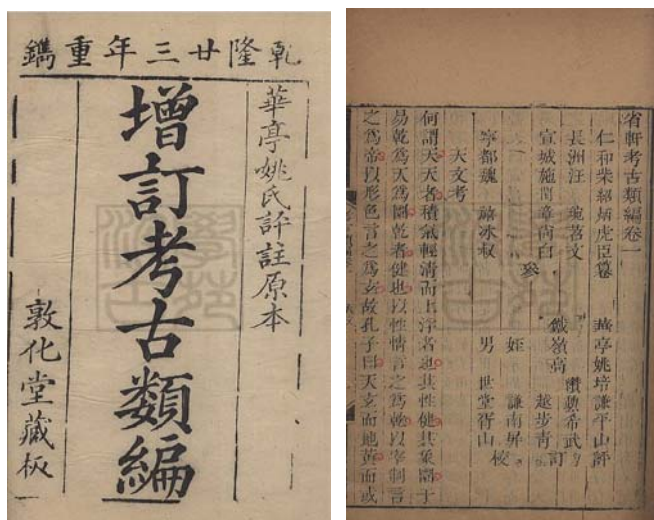 乾隆廿三年重鐫
華亭姚氏評註原本
增訂考古類編
敦化堂藏板
省軒考古類編卷一
仁和柴紹炳虎臣纂 華亭姚培謙平山評
長洲汪 琬苕文
宣城施閏章尚白 參
寧都魏 禧冰叔
鐵嶺高 纘勳希武
越步青 訂
姪 謙南屏
男 世堂胥山 校
天文考
何謂天天者積氣輕清而上浮者也其性健其象圜于
易乾爲天爲圜乾者健也以性情言之爲乾以宰制言
之爲帝以形色言之爲玄故孔子曰天玄而地黃而或
學苑汲古